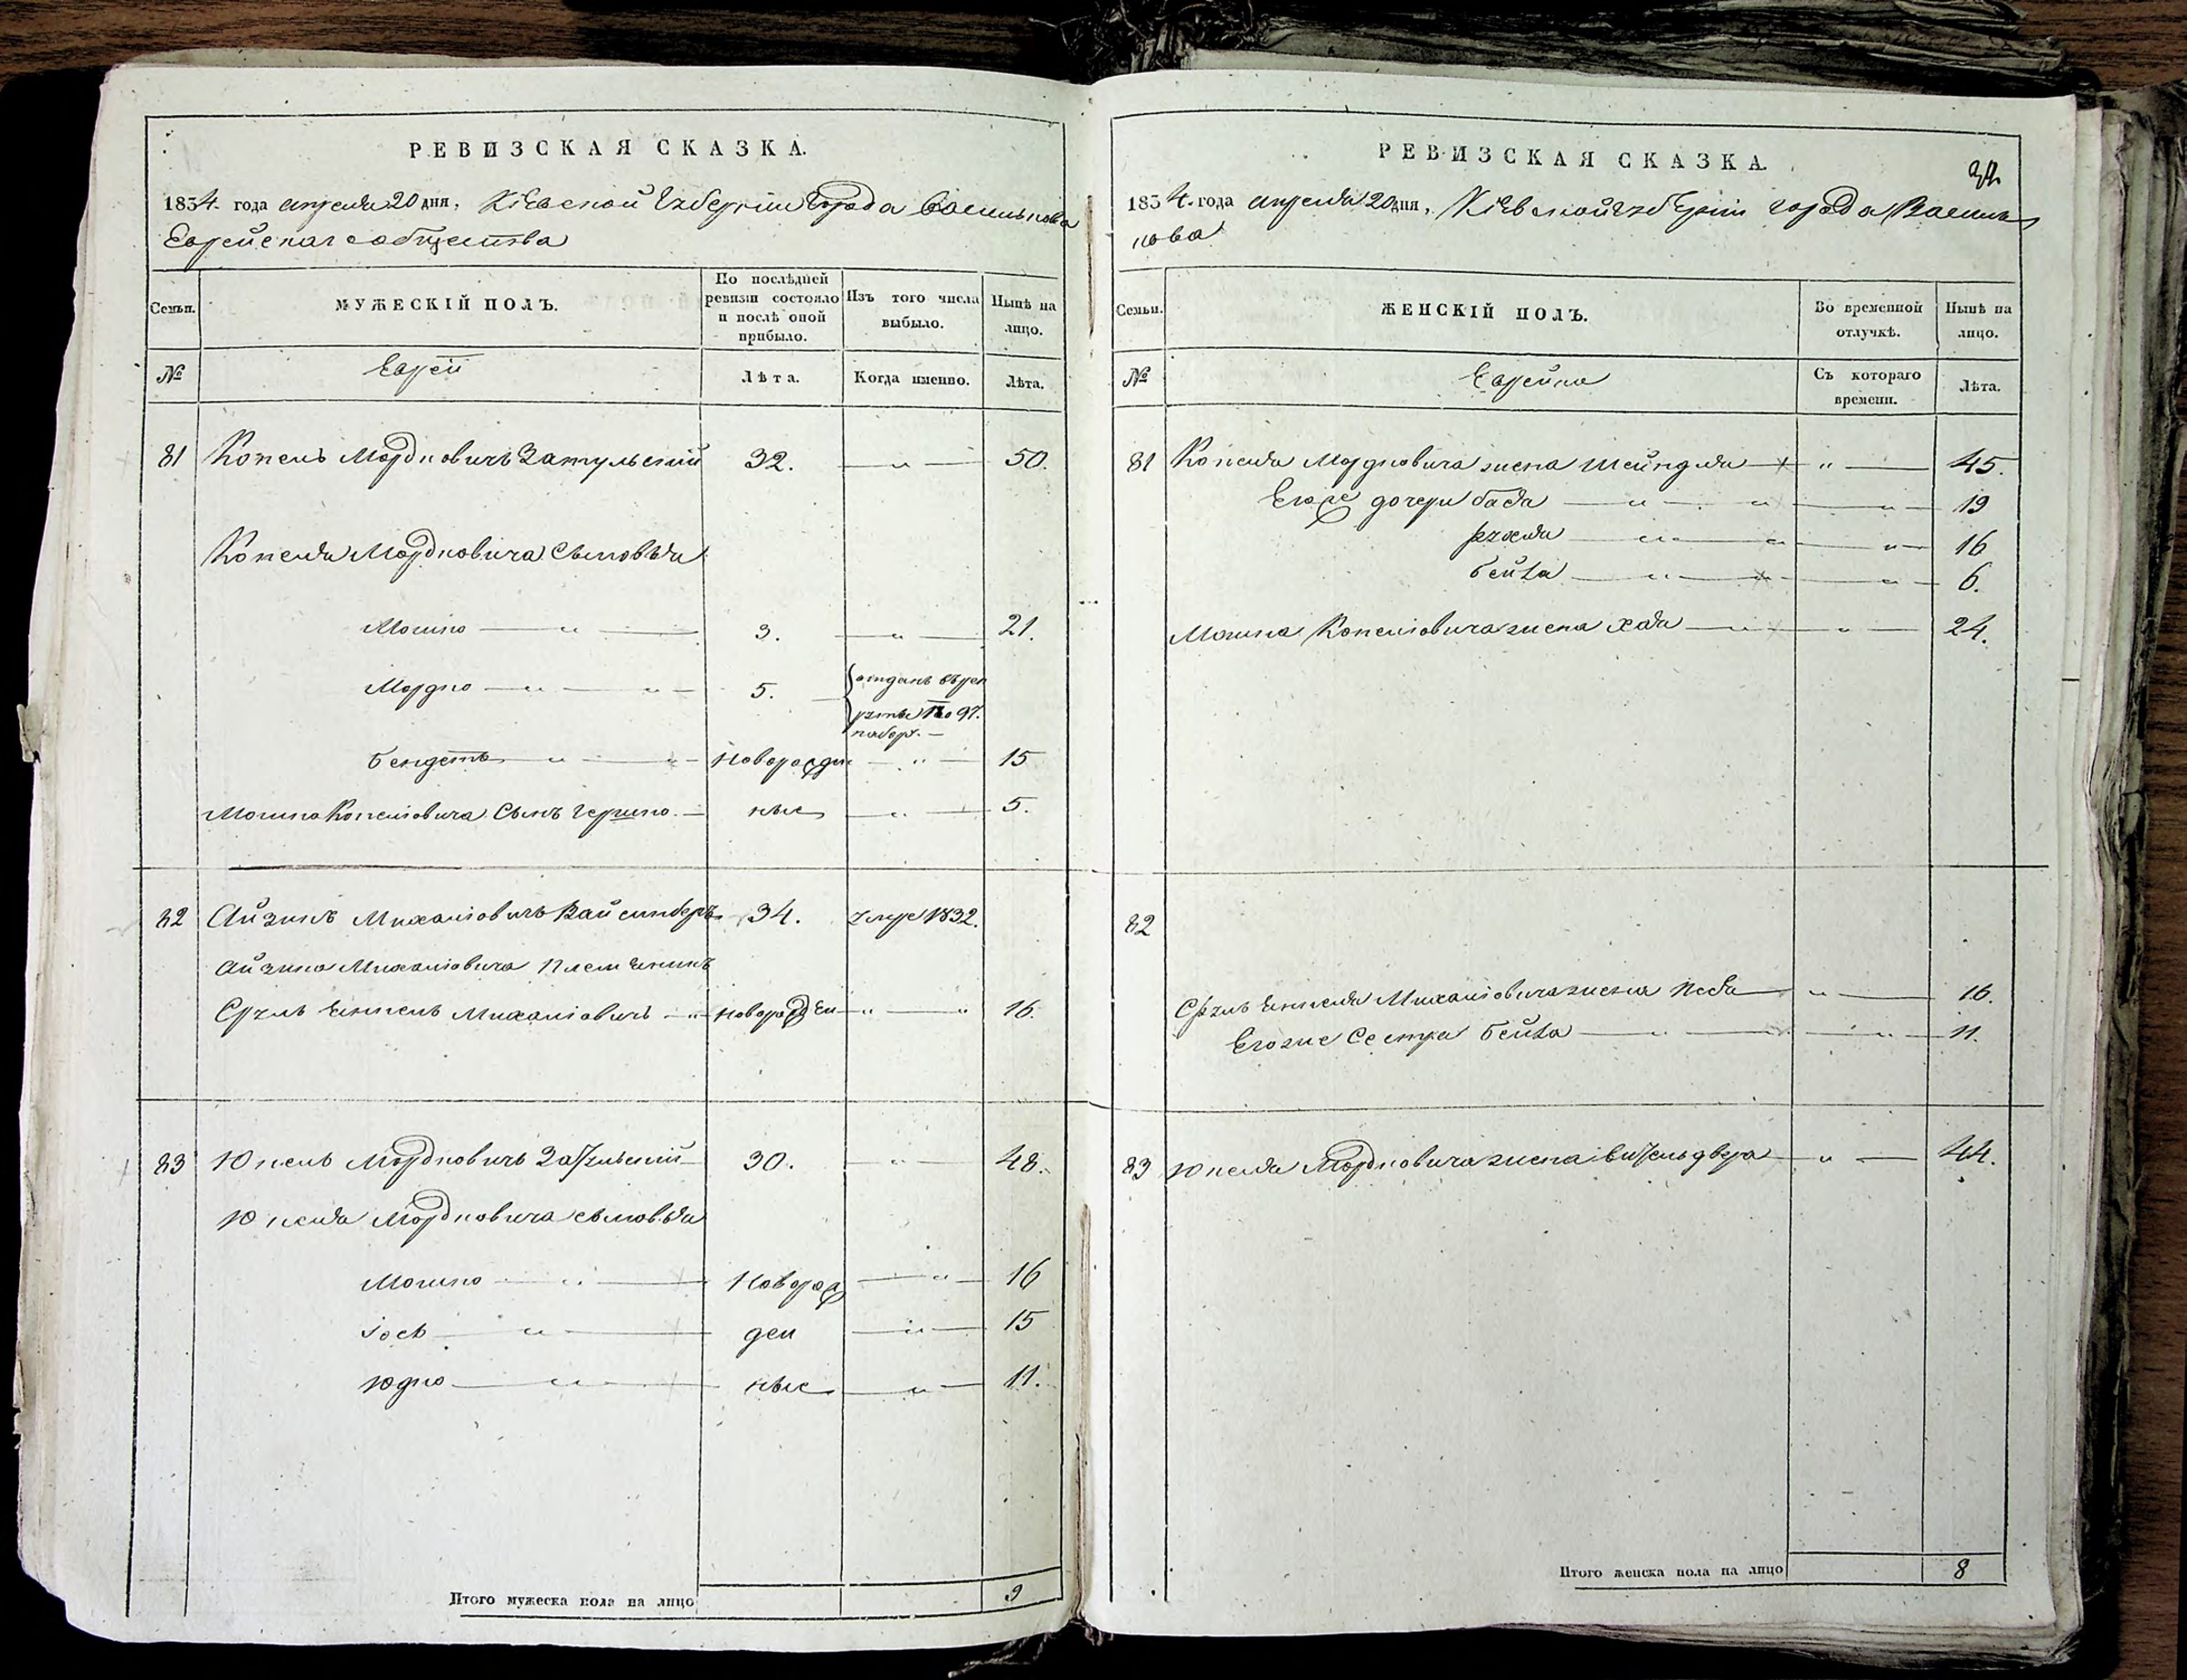 РЕВИЗСКАЯ СКАЗКА.
1834. года апреля 20 дня, Кіевской Губерніи Города Василькова
Еврейскаго общества
Семьи. МУЖЕСКІЙ ПОЛЪ. По послѣдней ревизіи состояло и послѣ оной прибыло. Изъ того числа выбыло. Нынѣ на лицо.
№ Евреи Лѣта. Когда именно. Лѣта.
81 Копель Мордковичъ Затульский 32. — „ — 50.
Копеля Мордковича Сыновья
Мошко — „ — 3. — „ — 21.
Мордко — „ — „ — 5. отданъ въ рек
руты По 97.
набор. —
Бендетъ — „ — „ — Новорожден — „ — 15
Мошка Копелiовича Сынъ Гершко — ные — „ — 5.
82 Айзикъ Михалiовичъ Вайсинберъ 34. умре 1832.
Айзика Михалiовича Племеникъ
Сруль Енкель Михалiовичъ — „ — Новорожден — „ — „ 16.
83 Юкель Мордковичъ Затульский 30. „ 48.
Юкеля Мордковича сыновья
Мошко — „ — Новорож — „ — 16
Іось — „ — ден — „ — 15
Юдко — „ — ные — „ — 11.
Итого мужеска пола на лицо 9
РЕВИЗСКАЯ СКАЗКА.
1834. года апреля 20 дня, Кіевской Губерніи города Василь
кова
Семьи. ЖЕНСКІЙ ПОЛЪ. Во временной отлучкѣ. Нынѣ на лицо.
№ Еврейки Съ котораго времени. Лѣта.
81 Копеля Мордковича жена Шейндля — „ — 45.
Егоже дочери Бася — „ — „ — „ — 19
Рухля — „ — „ — „ — 16
Бейла — „ — „ — 6.
Мошка Копелiовича жена Хая — „ — „ — 24.
82
Сруль Енкеля Михалiовича жена Песя — „ — 16.
Егоже Сестра Бейла — „ — „ — 11.
83 Юкеля Мордковича жена двера — „ — 44.
Итого женска пола на лицо 8